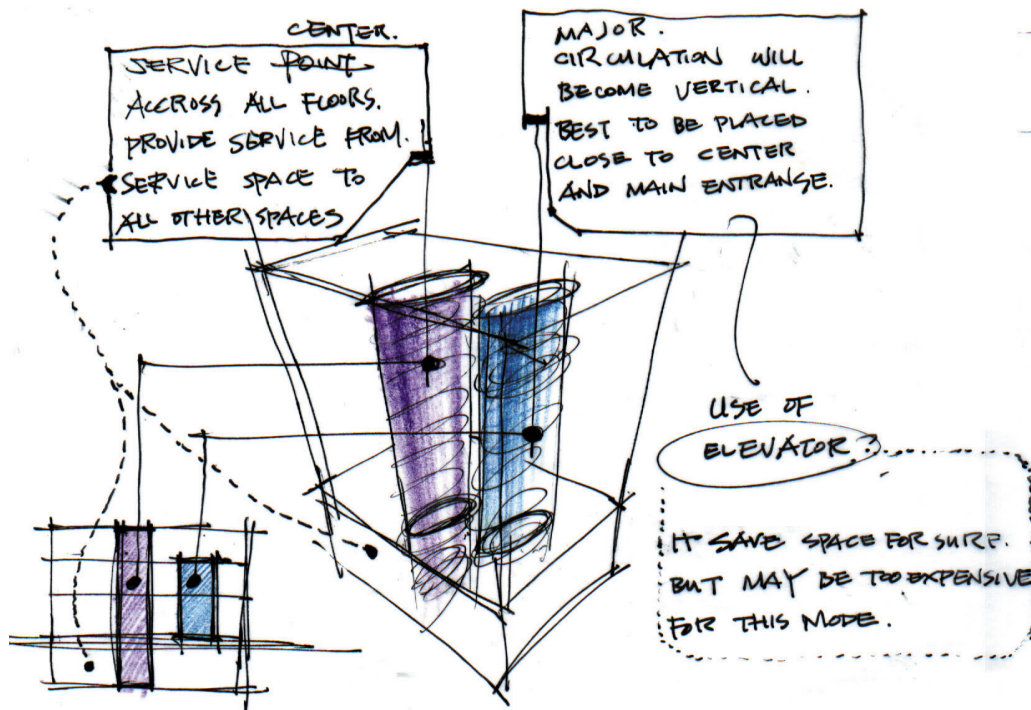 CENTER.
SERVICE POINT
ACCROSS ALL FLOORS.
PROVIDE SERVICE FROM.
SERVICE SPACE TO
ALL OTHER SPACES
MAJOR.
CIRCULATION WILL
BECOME VERTICAL.
BEST TO BE PLACED
CLOSE TO CENTER
AND MAIN ENTRANSE.
USE OF
ELEVATOR?
IT SAVE SPACE FOR SURE.
BUT MAY BE TOO EXPENSIVE
FOR THIS MODE.